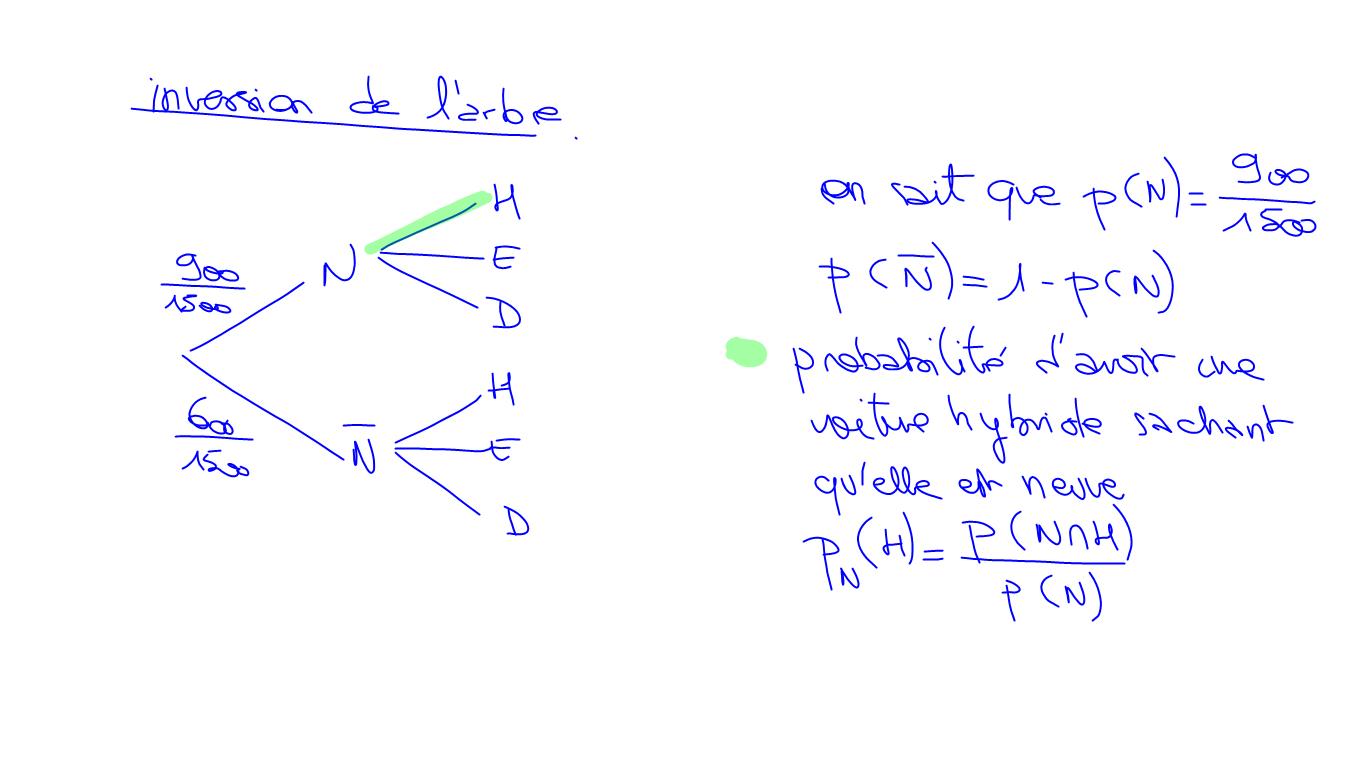 inversion de l'arbre.
H
900/1500 N E
D
H
600/1500 N̅ E
D
on sait que p(N) = 900/1500
p(N̅) = 1 - p(N)
probabilité d'avoir une
voiture hybride sachant
qu'elle est neuve
p_N(H) = P(N∩H)/p(N)